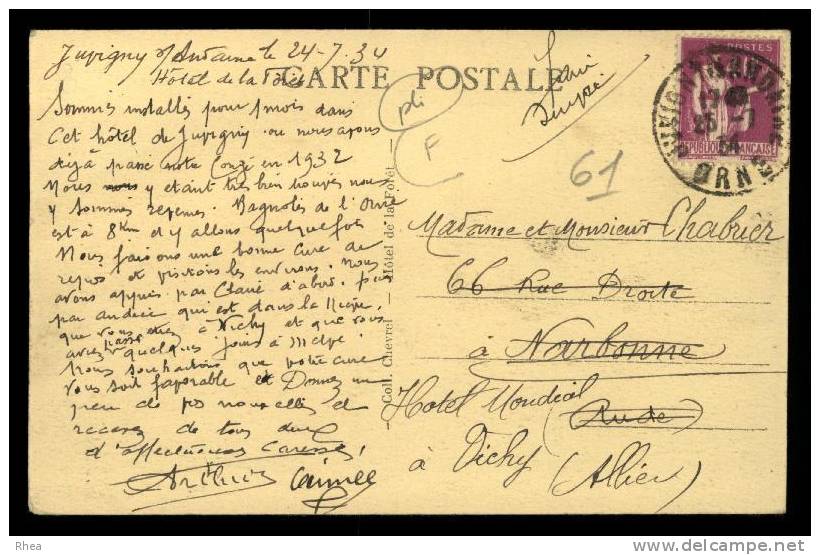 Juvigny s/ Andaine le 24-7-34
Hôtel de la Forêt
CARTE POSTALE
Sommes installés pour 1 mois dans
cet hôtel de Juvigny ou nous avons
déjà passé notre Congé en 1932
Nous y étant très bien trouvés nous
y sommes revenus. Bagnoles de l'Orne
est à 8 km et y allons quelquefois
Nous faisons une bonne cure de
repos et visitons les environs. Nous
avons appris par Claire d'abord, puis
par Andrée qui est dans la Nièvre,
que vous étiez à Vichy et que vous
aviez passé quelques jours à
Nous souhaitons que votre cure
vous soit favorable et Donnez un
peu de vos nouvelles et
recevez de tous deux
d'affectueuses caresses,
Arthur Aimée
pli
F
61
- Coll. Chevrel - Hôtel de la Forêt -
POSTES
REPUBLIQUE FRANÇAISE
ORNE
Madame et Monsieur Chabrier
66 Rue Droite
à Narbonne
(Aude)
Hotel Mondial
à Vichy
(Allier)
Rhea
www.delcampe.net